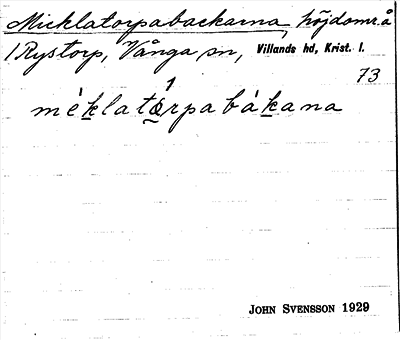 Micklatorpabackarna, höjdområ
/Rystorp, Vånga sn, Villands hd, Krist. l.
73
1
méklatǻrpabákana
JOHN SVENSSON 1929